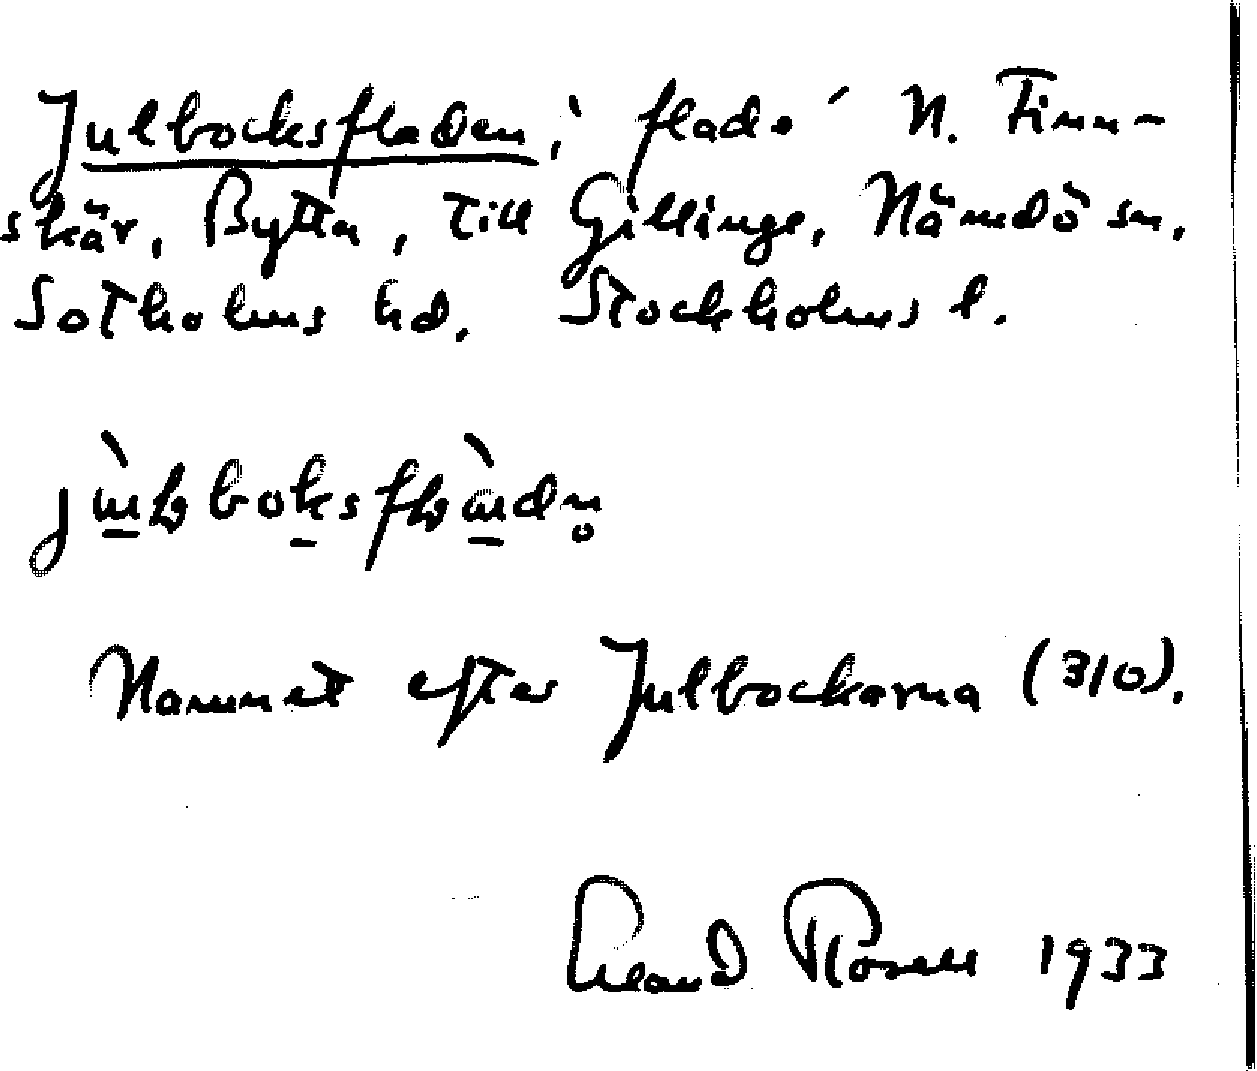 Julbocksfladen, 'flad.' N. Finn-
skär, Bytta, till Gillinge, Nämdö sn,
Sotholms hd. Stockholms l.
Namnet efter Julbockarna (310).
Erland Rosell 1933